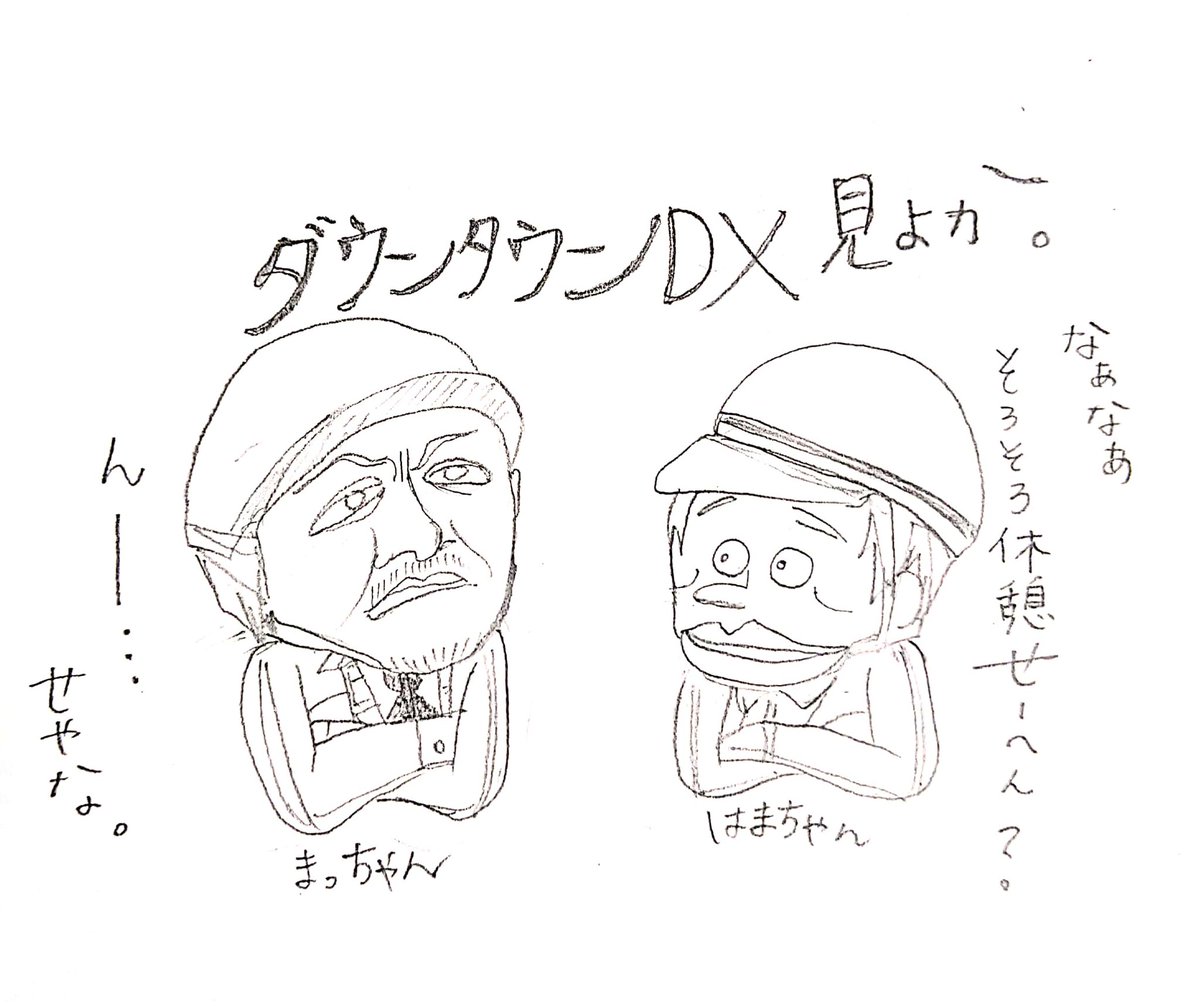 ダウンタウンDX 見よカー。
なぁなあ
そろそろ休憩せーへん？
んー…
せやな。
まっちゃん
はまちゃん